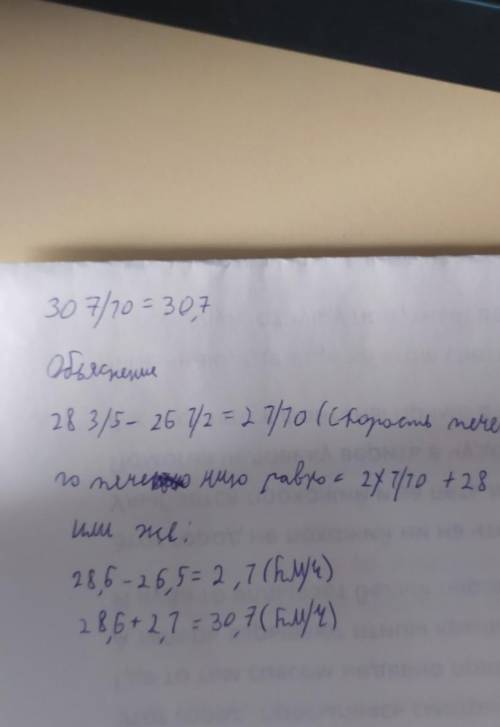 30 7/10 = 30,7
Объяснение
28 3/5 - 26 1/2 = 2 7/10 (Скорость тече
по течению равно = 2 7/10 + 28
или же:
28,6 - 26,5 = 2,7 (км/ч)
28,6 + 2,7 = 30,7 (км/ч)